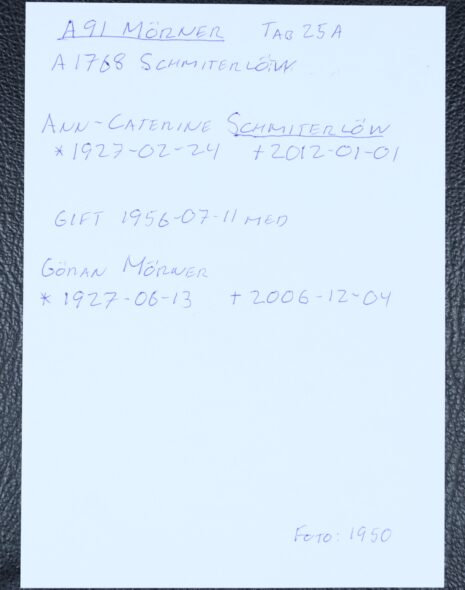 A 91 MÖRNER TAB 25A
A 1768 SCHMITERLÖW
ANN-CATERINE SCHMITERLÖW
* 1927-02-24 + 2012-01-01
GIFT 1956-07-11 MED
GÖRAN MÖRNER
* 1927-06-13 + 2006-12-04
FOTO: 1950